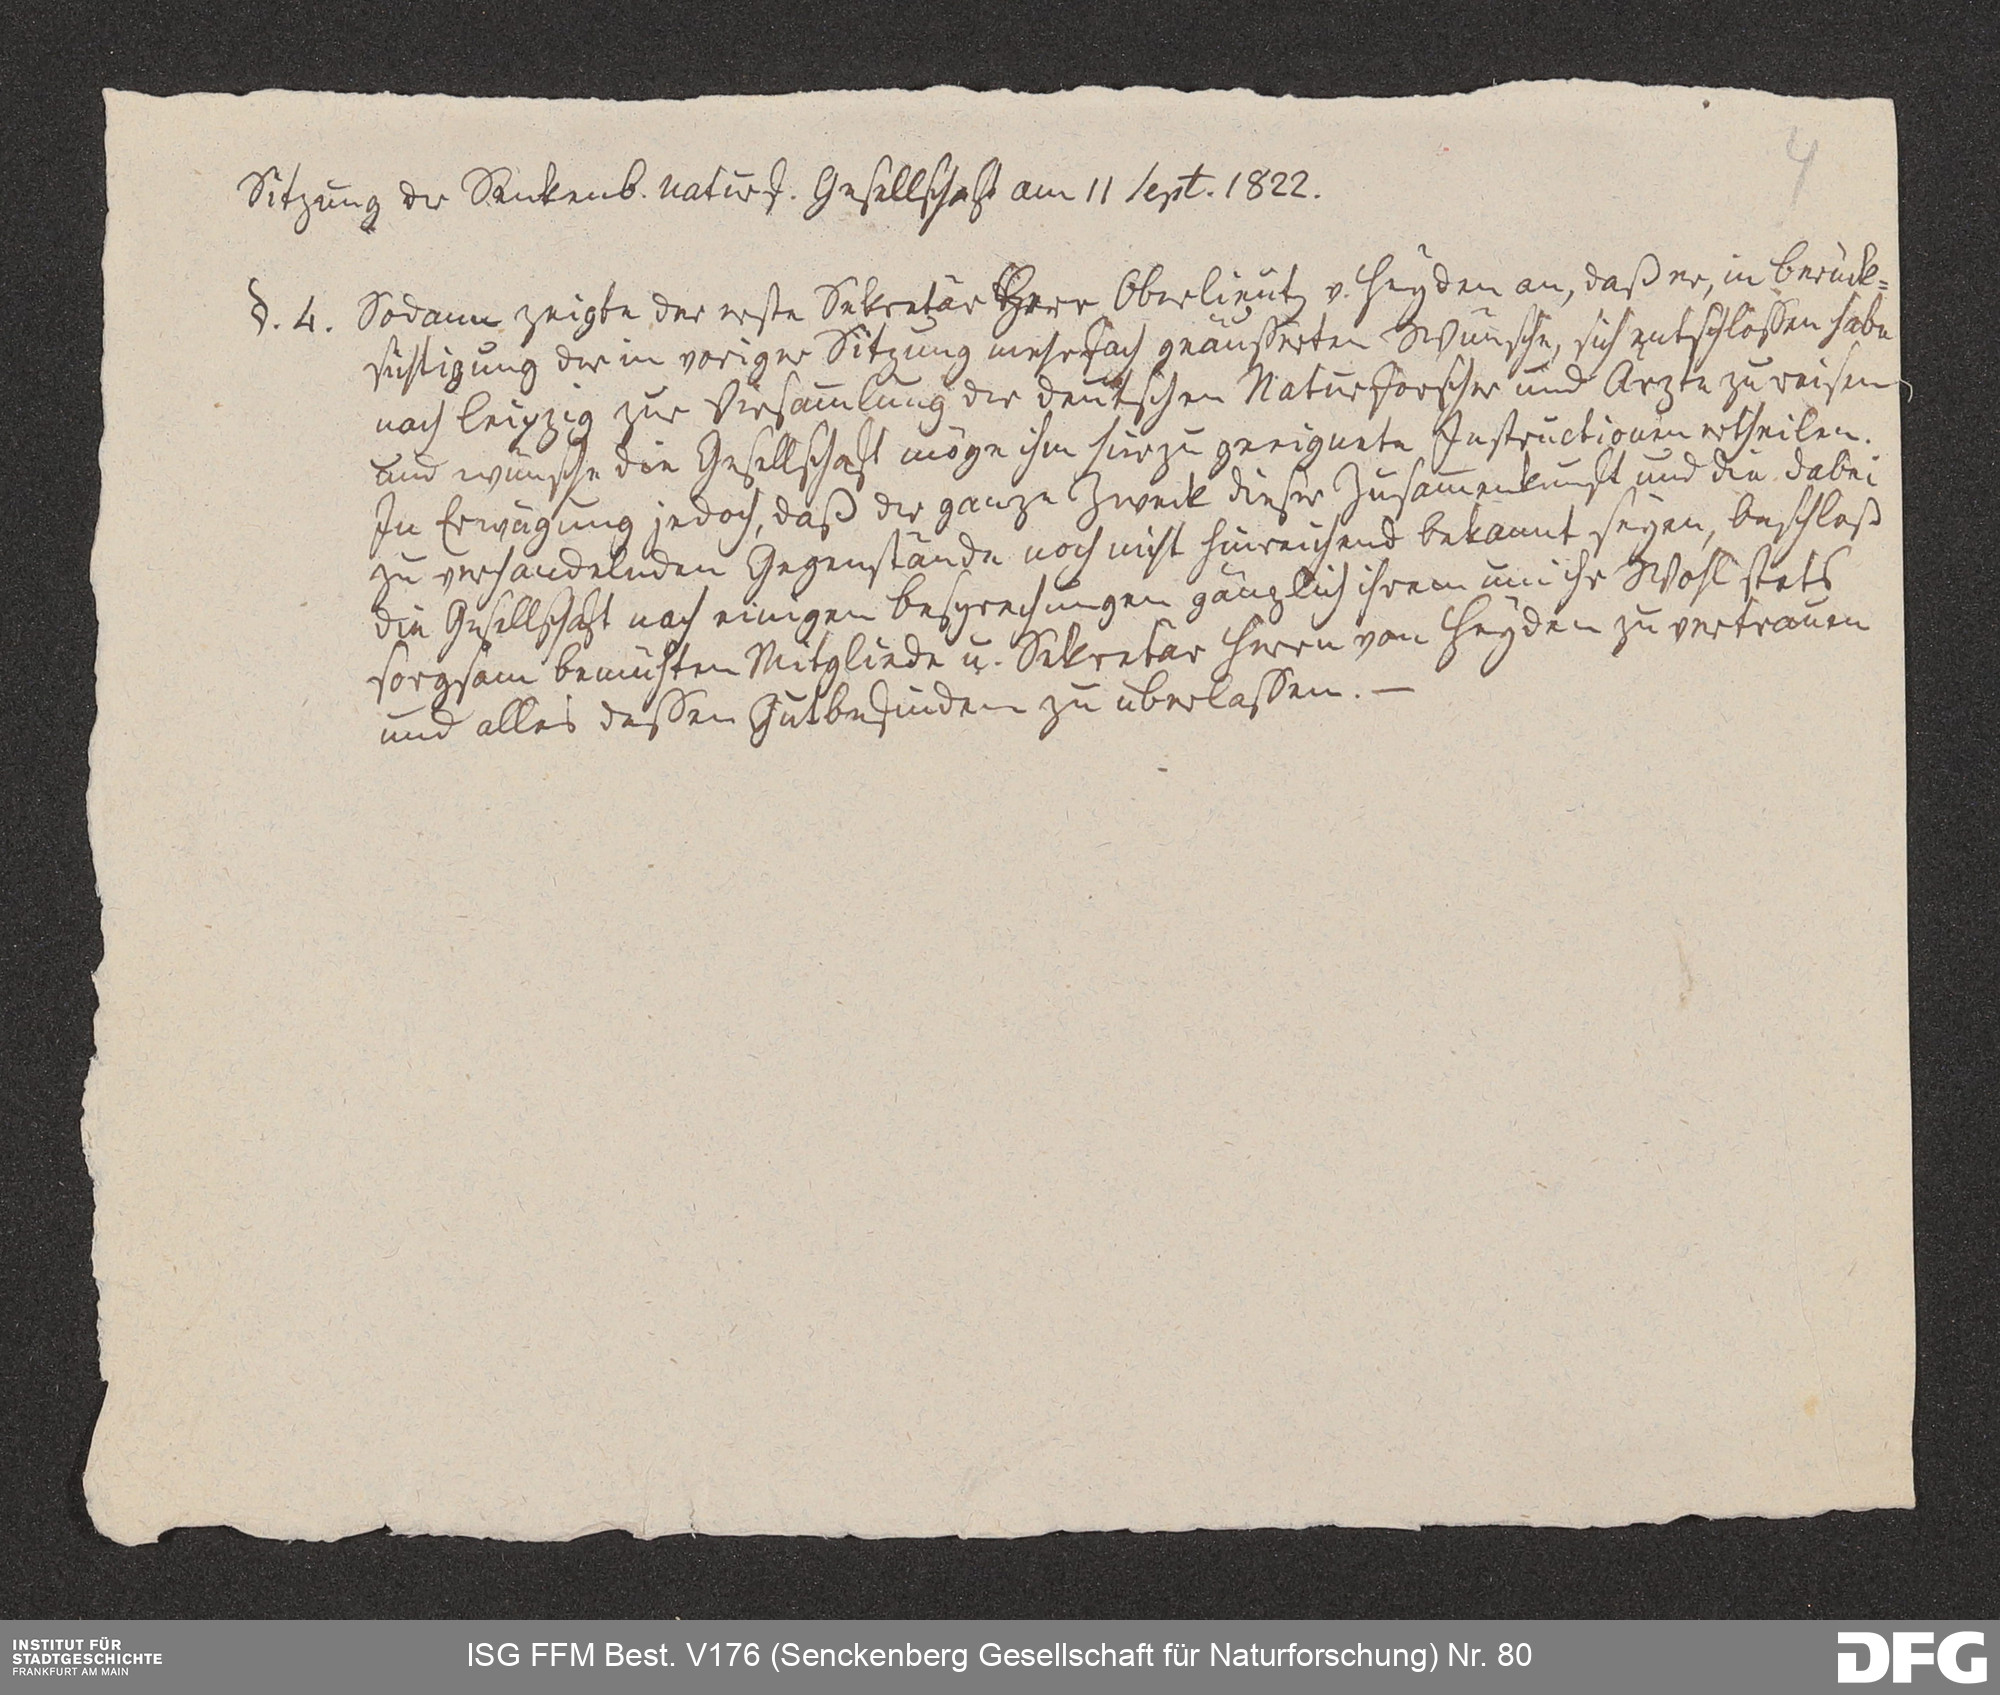 4
Sitzung der Senkenb. naturf. Gesellschaft am 11 Sept. 1822.
§. 4. Sodann zeigte der erste Sekretär Herr Oberlieut v. Heyden an, daß er, in Berück=
sichtigung der in voriger Sitzung mehrfach geäusserten Wünsche, sich entschlossen habe
nach Leipzig zur Versammlung der deutschen Naturforscher und Ärzte zu reisen
und wünsche die Gesellschaft möge ihm hierzu geeignete Instructionen ertheilen.
In Erwägung jedoch, daß der ganze Zweck dieser Zusammenkunft und die dabei
zu verhandelnden Gegenstände noch nicht hinreichend bekannt seyen, beschloß
die Gesellschaft nach einigen Besprechungen gänzlich ihrem um ihr Wohl stets
sorgsam bemühten Mitgliede u. Sekretär Herrn von Heyden zu vertrauen
und alles dessen Gutbefinden zu überlassen. —
INSTITUT FÜR
STADTGESCHICHTE
FRANKFURT AM MAIN
ISG FFM Best. V176 (Senckenberg Gesellschaft für Naturforschung) Nr. 80
DFG